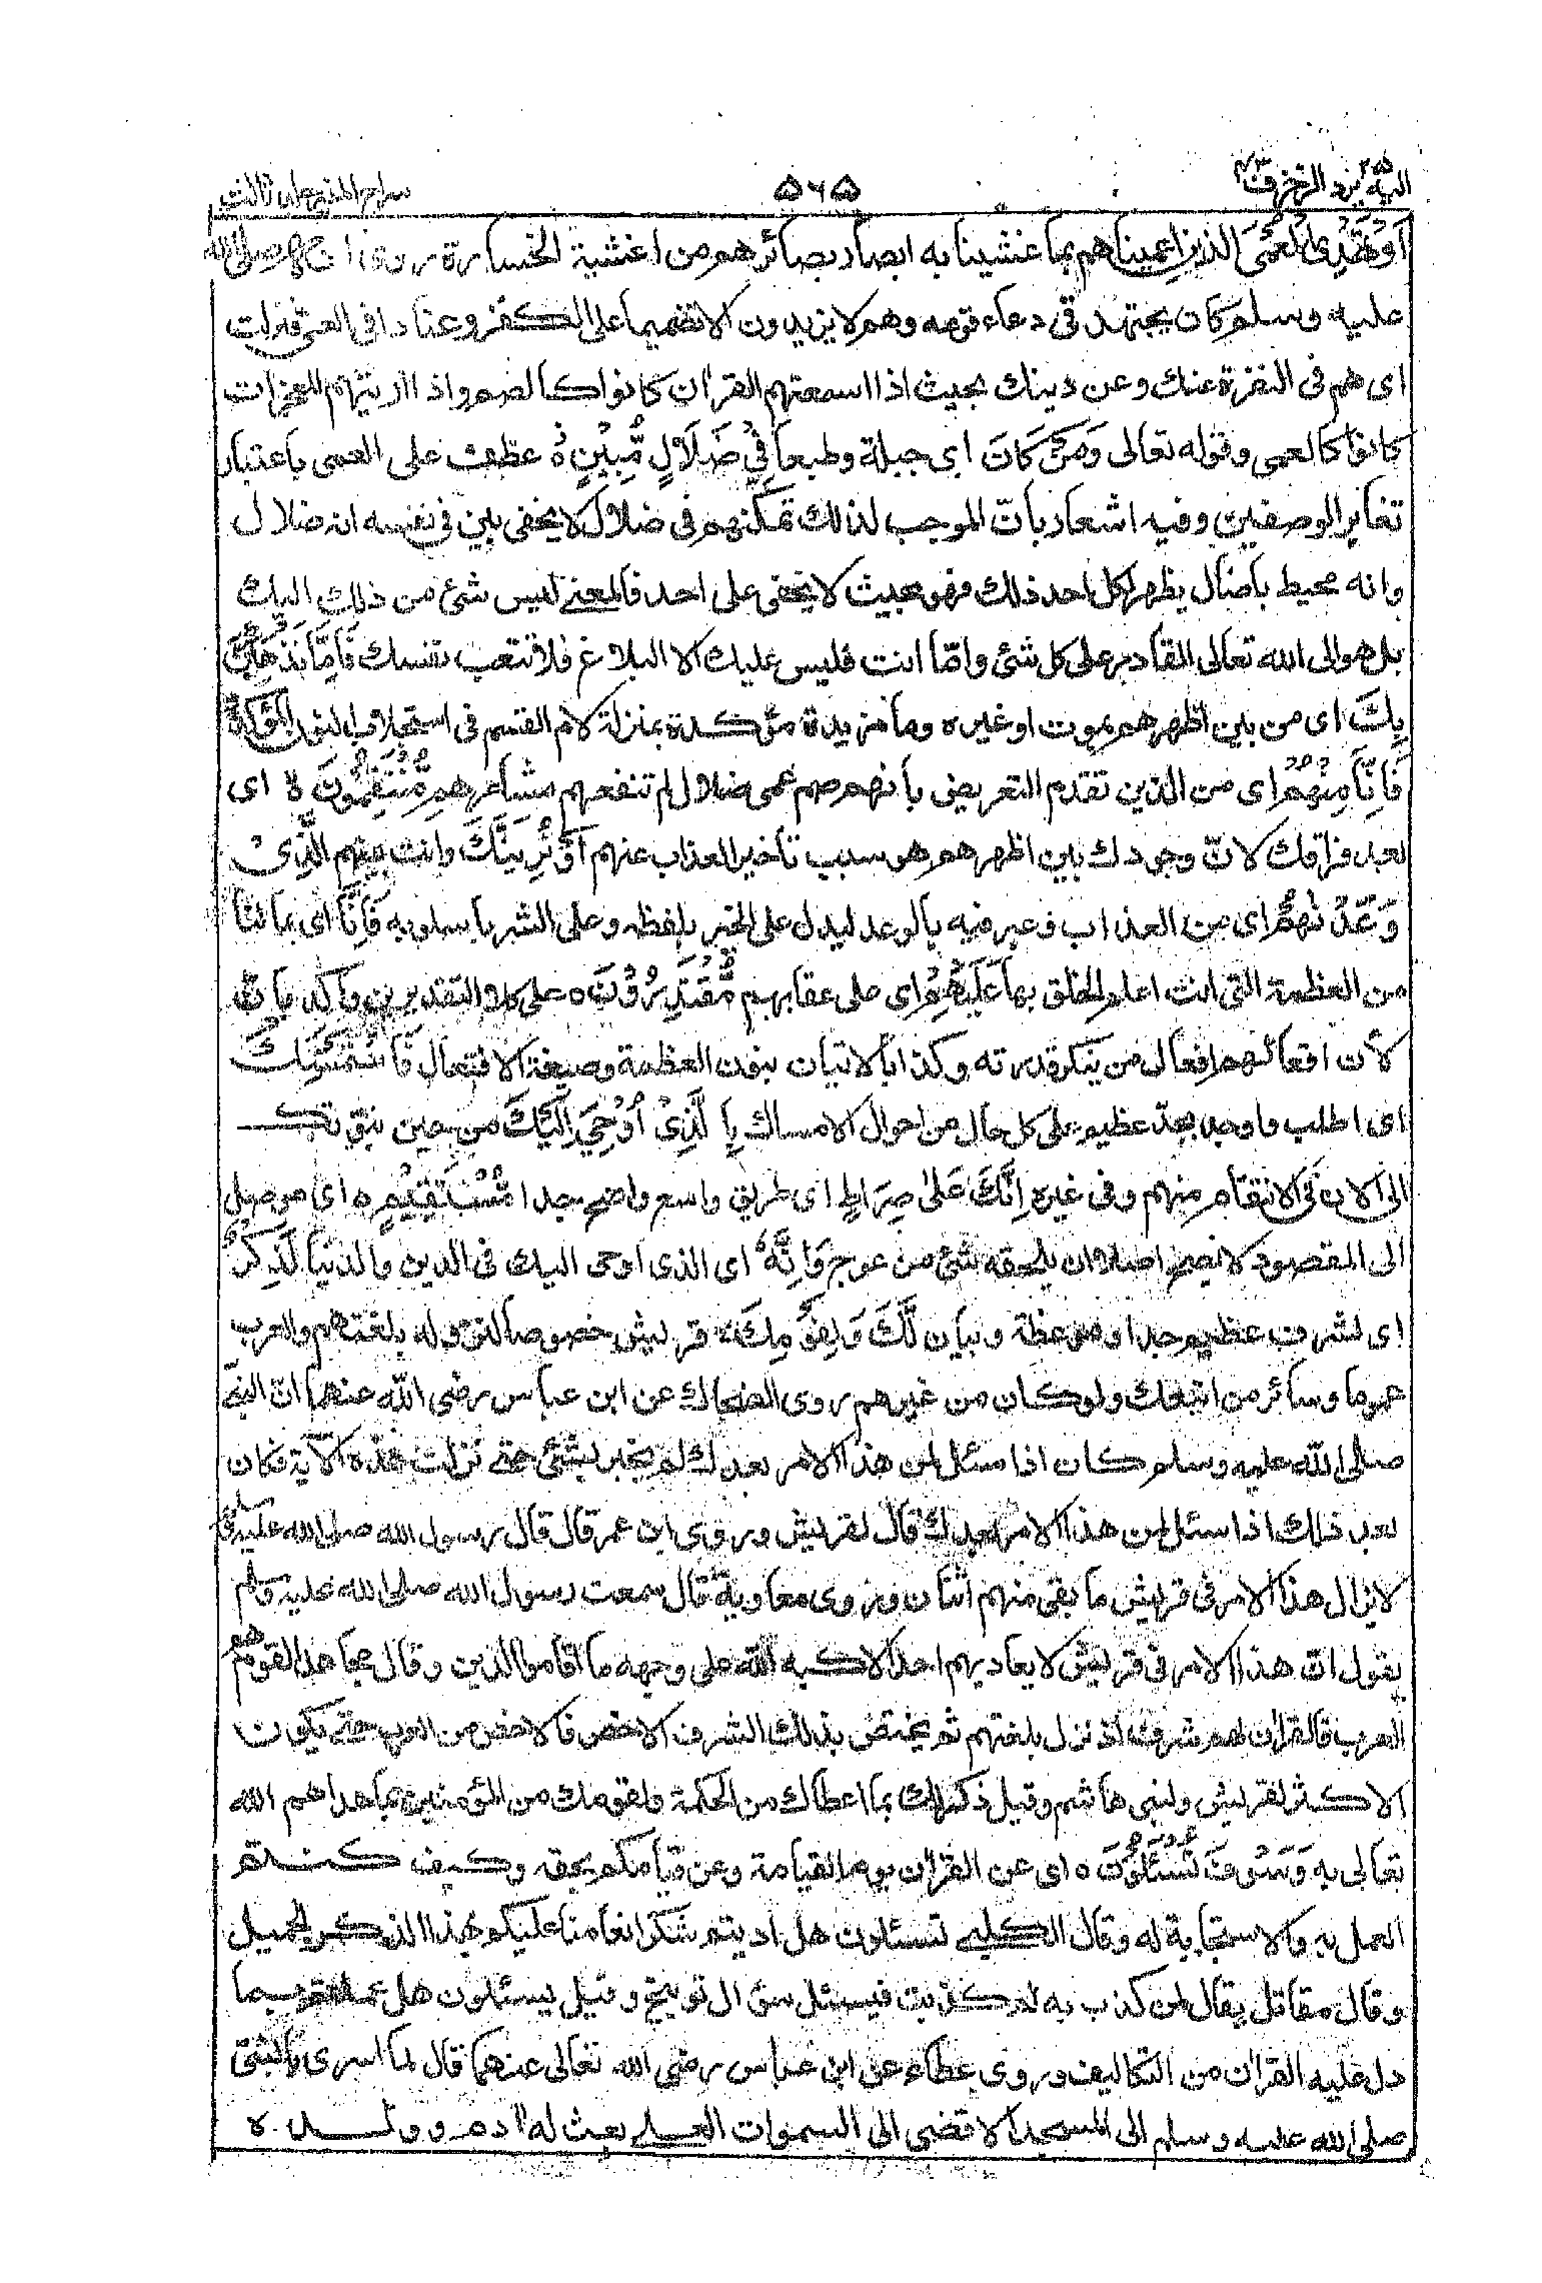 اليه يرد ٢٥ الزخرف ٤٣ ۵۶۵ سراج المنير جلد ثالث
اَوْ تَهْدِى الْعُمْىَ الذين اعميناهم بما غشينا به ابصار بصائرهم من اغشية الخسارة روى ان صلى الله
عليه وسلم كان يجتهد فى دعاء قومه وهم لا يزيدون الا تصميما على الكفر وعنادا فى الغى فنزلت
اى هم فى النفرة عنك وعن دينك بحيث اذا اسمعتهم القرآن كانوا كالصم واذا اريتهم المعجزات
كانوا كالعمى وقوله تعالى وَمَنْ كَانَ اى جبلة وطبعا فِىْ ضَلَالٍ مُّبِيْنٍ ه عطف على العمى باعتبار
تغاير الوصفين وفيه اشعار بانّ الموجب لذلك تمكنهم فى ضلال لا يخفى بين فى نفسه انه ضلال
وانه محيط بالضال يظهر لكل احد ذلك فهو بحيث لا يخفى على احد فالمعنى ليس شئ من ذلك اليك
بل هو الى الله تعالى القادر على كل شئ وامّا انت فليس عليك الا البلاغ فلا تتعب نفسك فَاِمَّا نَذْهَبَنَّ
بِكَ اى من بين اظهرهم بموت او غيره وما مزيدة مؤكدة بمنزلة لام القسم فى استجلاب النون المؤكدة
فَاِنَّا مِنْهُمْ اى من الذين تقدم التعريض بانهم صم عمى ضلال لم تنفعهم مشاعرهم مُّنْتَقِمُوْنَ ه اى
بعد فراقك لانّ وجودك بين اظهرهم هو سبب تأخير العذاب عنهم اَوْ نُرِيَنَّكَ وانت بينهم الَّذِىْ
وَعَدْنٰهُمْ اى من العذاب وعبر فيه بالوعد ليدل على الخير بلفظه وعلى الشر باسلوبه فَاِنَّا اى بما لنا
من العظمة التى انت اعلم الخلق بها عَلَيْهِمْ اى على عقابهم مُّقْتَدِرُوْنَ ه على كلا التقديرين واكد بانّ
لأن افعالهم افعال من ينكر قدرته وكذا بالاتيان بنون العظمة وصيغة الافتعال فَاسْتَمْسِكْ
اى اطلب واوجد بجدّ عظيم على كل حال من احوال الامساك بِالَّذِىْ اُوْحِىَ اِلَيْكَ من حين نبوتك
الى الان فى الانتقام منهم وفى غيره اِنَّكَ عَلٰى صِرَاطٍ اى طريق واسع واضح جدا مُّسْتَقِيْمٍ ه اى موصل
الى المقصود لا يصح اصلا ان يلحقه شئ من عوج وَاِنَّهٗ اى الذى اوحى اليك فى الدين والدنيا لَذِكْرٌ
اى لشرف عظيم جدا وموعظة وبيان لَّكَ وَلِقَوْمِكَ قريش خصوصا لنزوله بلغتهم والعرب
عموما وسائر من اتبعك ولو كان من غيرهم روى الضحاك عن ابن عباس رضى الله عنهما انّ النبى
صلى الله عليه وسلم كان اذا سئل لمن هذا الامر بعدك لم يخبر بشئ حتى نزلت هذه الآية فكان
بعد ذلك اذا سئل لمن هذا الامر بعدك قال لقريش وروى ابن عمر قال قال رسول الله صلى الله عليه وسلم
لا يزال هذا الامر فى قريش ما بقى منهم اثنان وروى معاوية قال سمعت رسول الله صلى الله عليه وسلم
يقول انّ هذا الامر فى قريش لا يعاديهم احد الا كبه الله على وجهه ما اقاموا الدين وقال مجاهد القوم هم
العرب فالقرآن لهم شرف اذ نزل بلغتهم ثم يختص بذلك الشرف الاخص فالاخص من العرب حتى يكون
الاكثر لقريش ولبنى هاشم وقيل ذكر لك بما اعطاك من الحكمة ولقومك من المؤمنين بما هداهم الله
تعالى به وَسَوْفَ تُسْئَلُوْنَ ه اى عن القرآن يوم القيامة وعن قيامكم بحقه وكيف كنتم
العمل به والاستجابة له وقال الكلبى تسئلون هل اديتم شكر انعامنا عليكم بهذا الذكر الجميل
وقال مقاتل يقال لمن كذب به لم كذبت فيسئل سؤال توبيخ وقيل يسئلون هل عملتم بما
دل عليه القرآن من التكاليف وروى عطاء عن ابن عباس رضى الله تعالى عنهما قال لما اسرى بالنبى
صلى الله عليه وسلم الى المسجد الاقصى الى السموات العلى بعث له آدم وولده